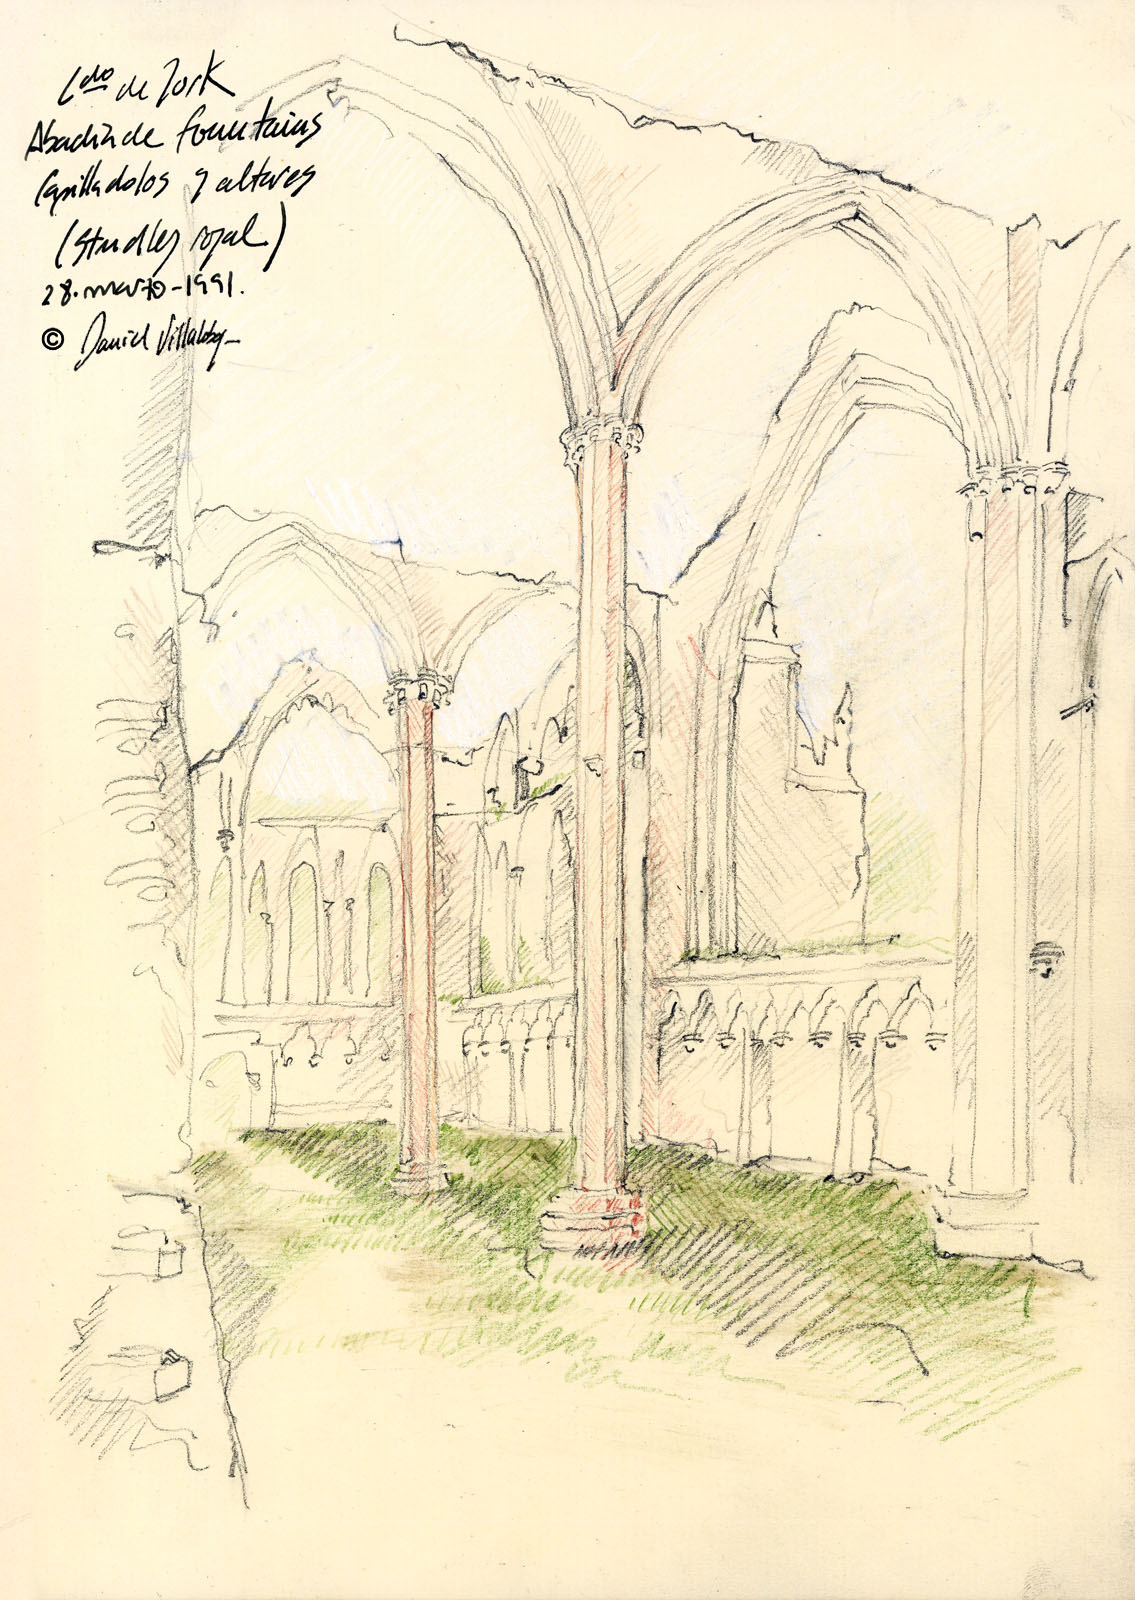 Cdo de York
Abadía de fountains
Capilla dolos y altares
(Studley royal)
28.marzo-1991.
© Daniel Villalobos